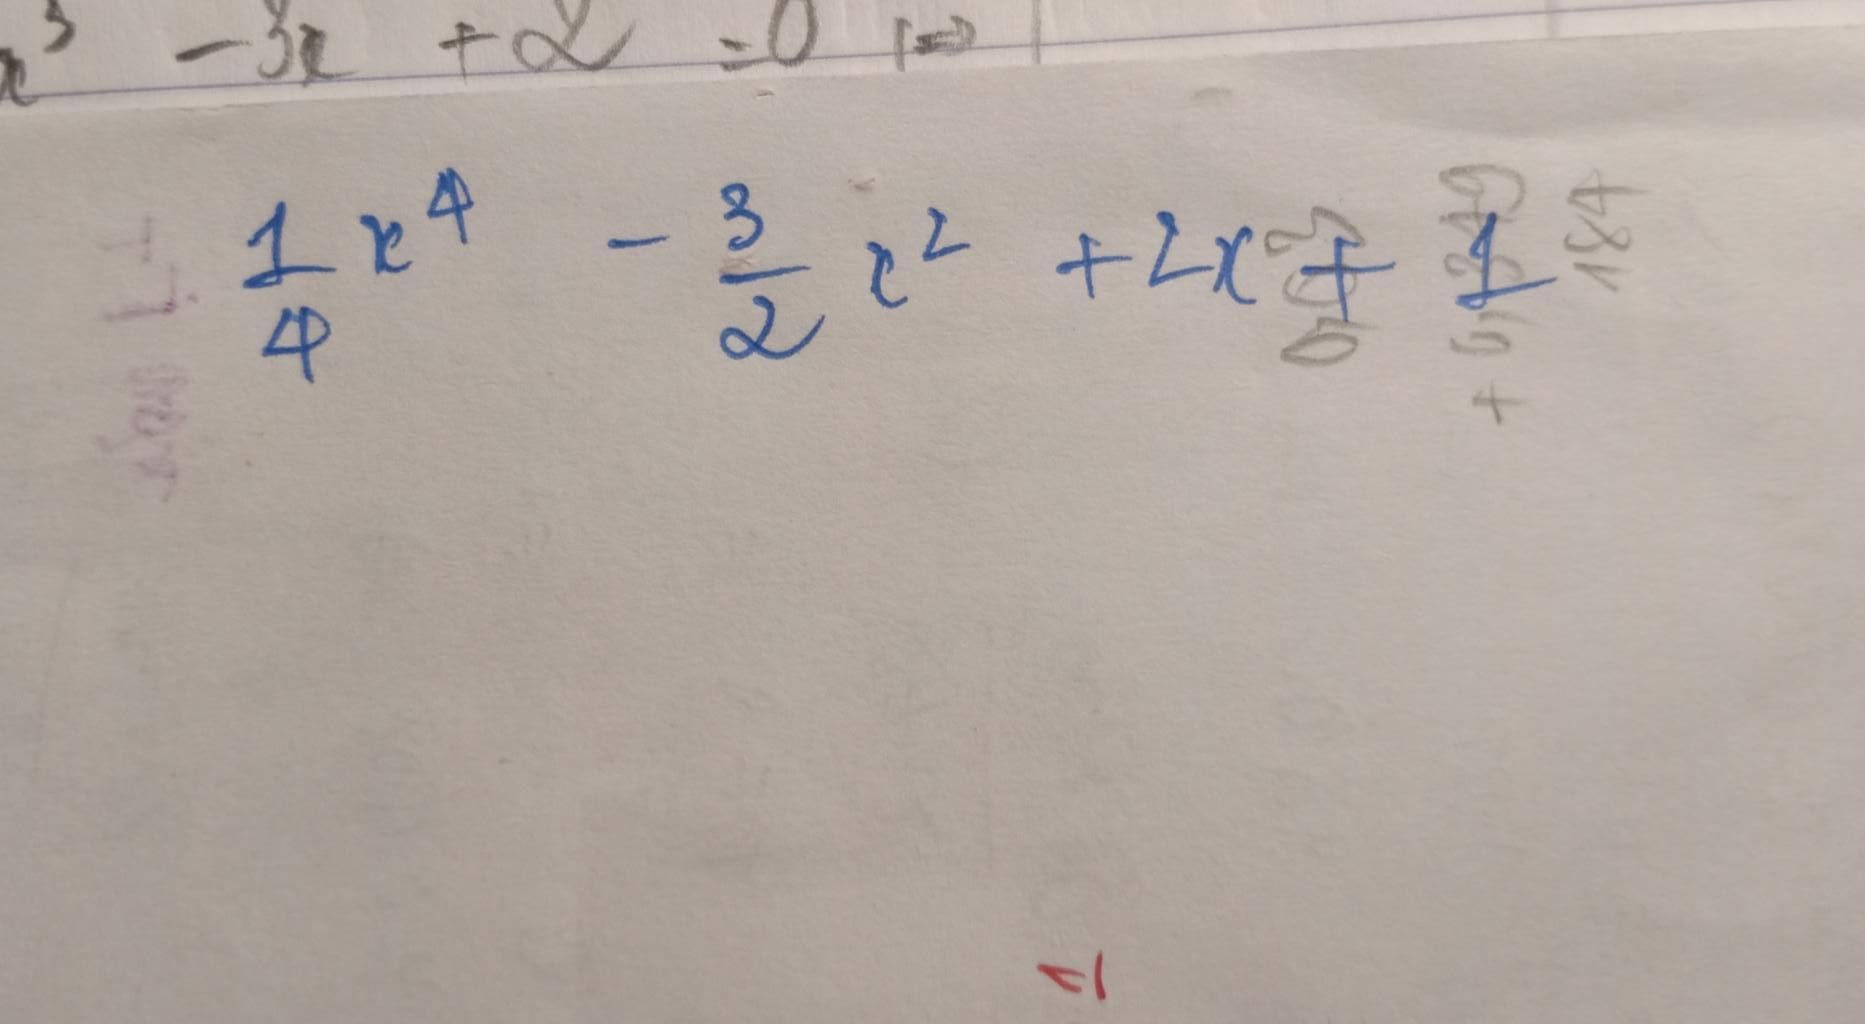 x³ -3x +2 =0 ⇔
1/4 x⁴ - 3/2 x² +2x + 1
184